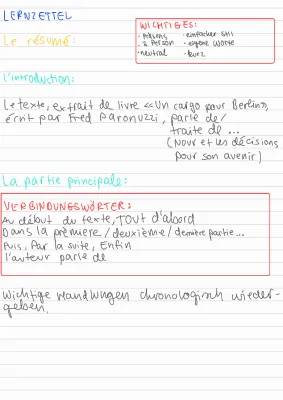 LERNZETTEL
Le résumé:
WICHTIGES:
· Präsens · einfacher Stil
· 3. Person · eigene Worte
· neutral · kurz
L'introduction:
Le texte, extrait de livre «Un cargo pour Berlin»,
écrit par Fred Paronuzzi, parle de/
traite de ...
(Nour et les décisions
pour son avenir)
La partie principale:
VERBINDUNGSWÖRTER:
Au début du texte, TOUT d'abord
Dans la première/deuxième/dernière partie...
Puis, Par la suite, Enfin
l'auteur parle de
Wichtige Handlungen chronologisch wieder-
geben.